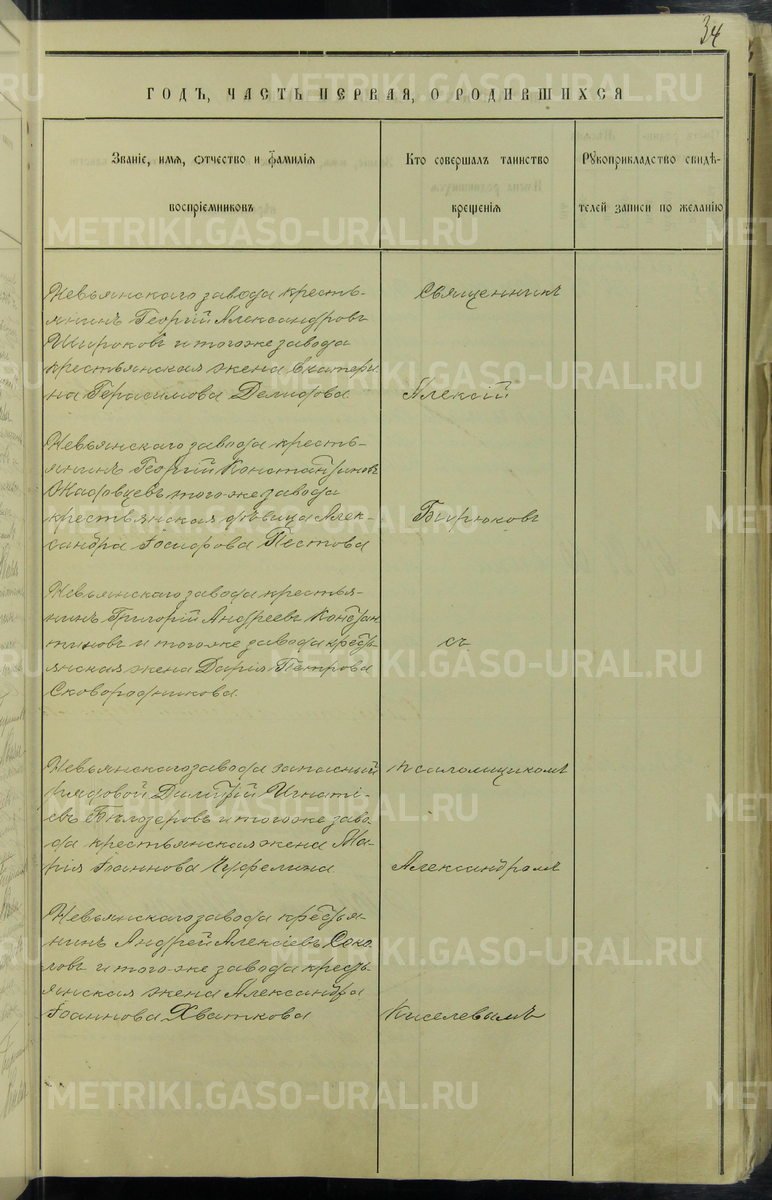 34
ГОДЪ, ЧАСТЬ ПЕРВАЯ, О РОДИВШИХСЯ
Званіе, имя, отчество и фамилія
воспріемниковъ
Кто совершалъ таинство
крещенія
Рукоприкладство свидѣ-
телей записи по желанію
Невьянскаго завода кресть-
янинъ Георгій Александровъ
Широковъ и того же завода
крестьянская жена Екатери
на Герасимова Демидова
Невьянскаго завода кресть-
янинъ Георгій Константиновъ
того же завода
крестьянская дѣвица Алек-
сандра Іосифова Пестова
Невьянскаго завода крестья-
нинъ Григорій Андреевъ Констан
тиновъ и того же завода кресть
янская жена Дарія Петрова
Сковородникова
Невьянскаго завода запасный
рядовой Димитрій Игнаті-
евъ Бѣлозеровъ и того же заво-
да крестьянская жена Ма-
рія Іоаннова
Невьянскаго завода крестья-
нинъ Андрей Алексіевъ Соко
ловъ и того же завода кресть
янская жена Александра
Іоаннова Хваткова
Священникъ
Алексій
Бирюковъ
съ
псаломщикомъ
Александромъ
Киселевымъ
METRIKI.GASO-URAL.RU